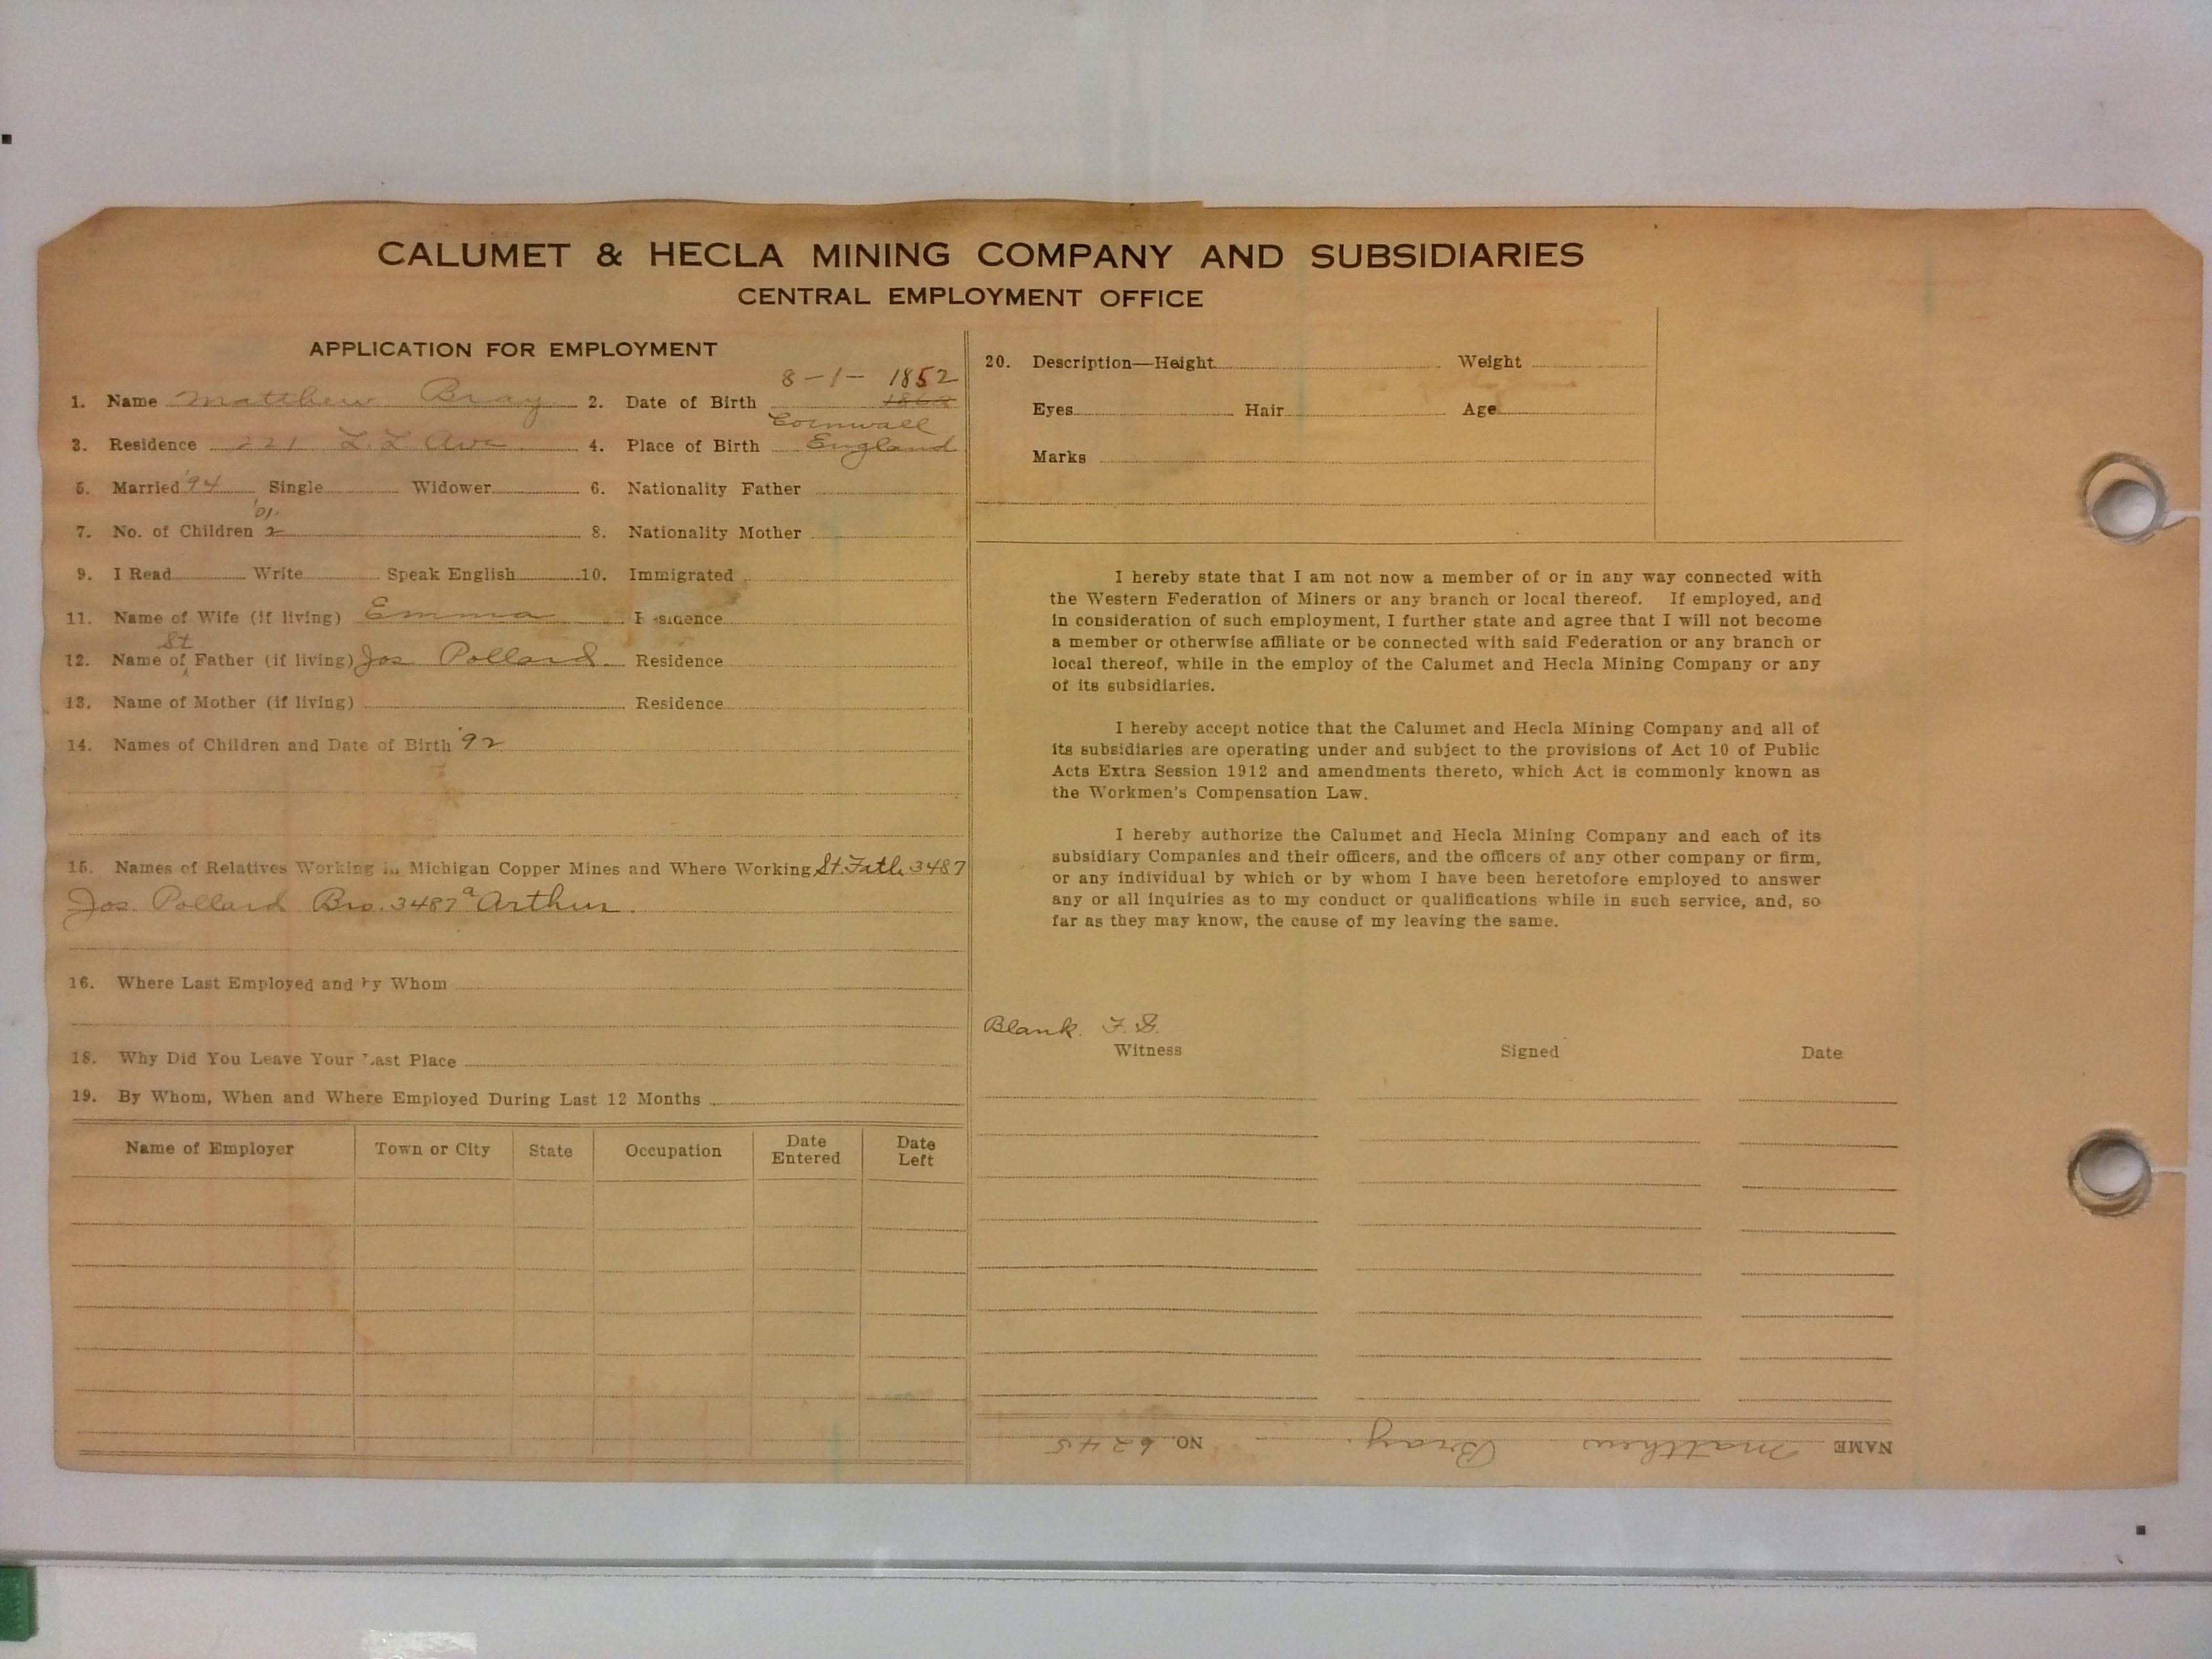 CALUMET & HECLA MINING COMPANY AND SUBSIDIARIES
CENTRAL EMPLOYMENT OFFICE
APPLICATION FOR EMPLOYMENT
8-1- 1852
1. Name Matthew Bray 2. Date of Birth 1862
Cornwall
3. Residence 221 L.L Ave 4. Place of Birth England
5. Married '94 Single Widower 6. Nationality Father
'01.
7. No. of Children 2 8. Nationality Mother
9. I Read Write Speak English 10. Immigrated
11. Name of Wife (if living) Emma Residence
St
12. Name of Father (if living) Jos Pollard. Residence
13. Name of Mother (if living) Residence
14. Names of Children and Date of Birth '92
15. Names of Relatives Working in Michigan Copper Mines and Where Working St. Fath. 3487
Jos. Pollard Bro. 3487a Arthur.
16. Where Last Employed and by Whom
18. Why Did You Leave Your Last Place
19. By Whom, When and Where Employed During Last 12 Months
Name of Employer Town or City State Occupation Date Entered Date Left
20. Description—Height Weight
Eyes Hair Age
Marks
I hereby state that I am not now a member of or in any way connected with
the Western Federation of Miners or any branch or local thereof. If employed, and
in consideration of such employment, I further state and agree that I will not become
a member or otherwise affiliate or be connected with said Federation or any branch or
local thereof, while in the employ of the Calumet and Hecla Mining Company or any
of its subsidiaries.
I hereby accept notice that the Calumet and Hecla Mining Company and all of
its subsidiaries are operating under and subject to the provisions of Act 10 of Public
Acts Extra Session 1912 and amendments thereto, which Act is commonly known as
the Workmen's Compensation Law.
I hereby authorize the Calumet and Hecla Mining Company and each of its
subsidiary Companies and their officers, and the officers of any other company or firm,
or any individual by which or by whom I have been heretofore employed to answer
any or all inquiries as to my conduct or qualifications while in such service, and, so
far as they may know, the cause of my leaving the same.
Blank. F.S.
Witness Signed Date
NAME Matthew Bray. NO. 6245